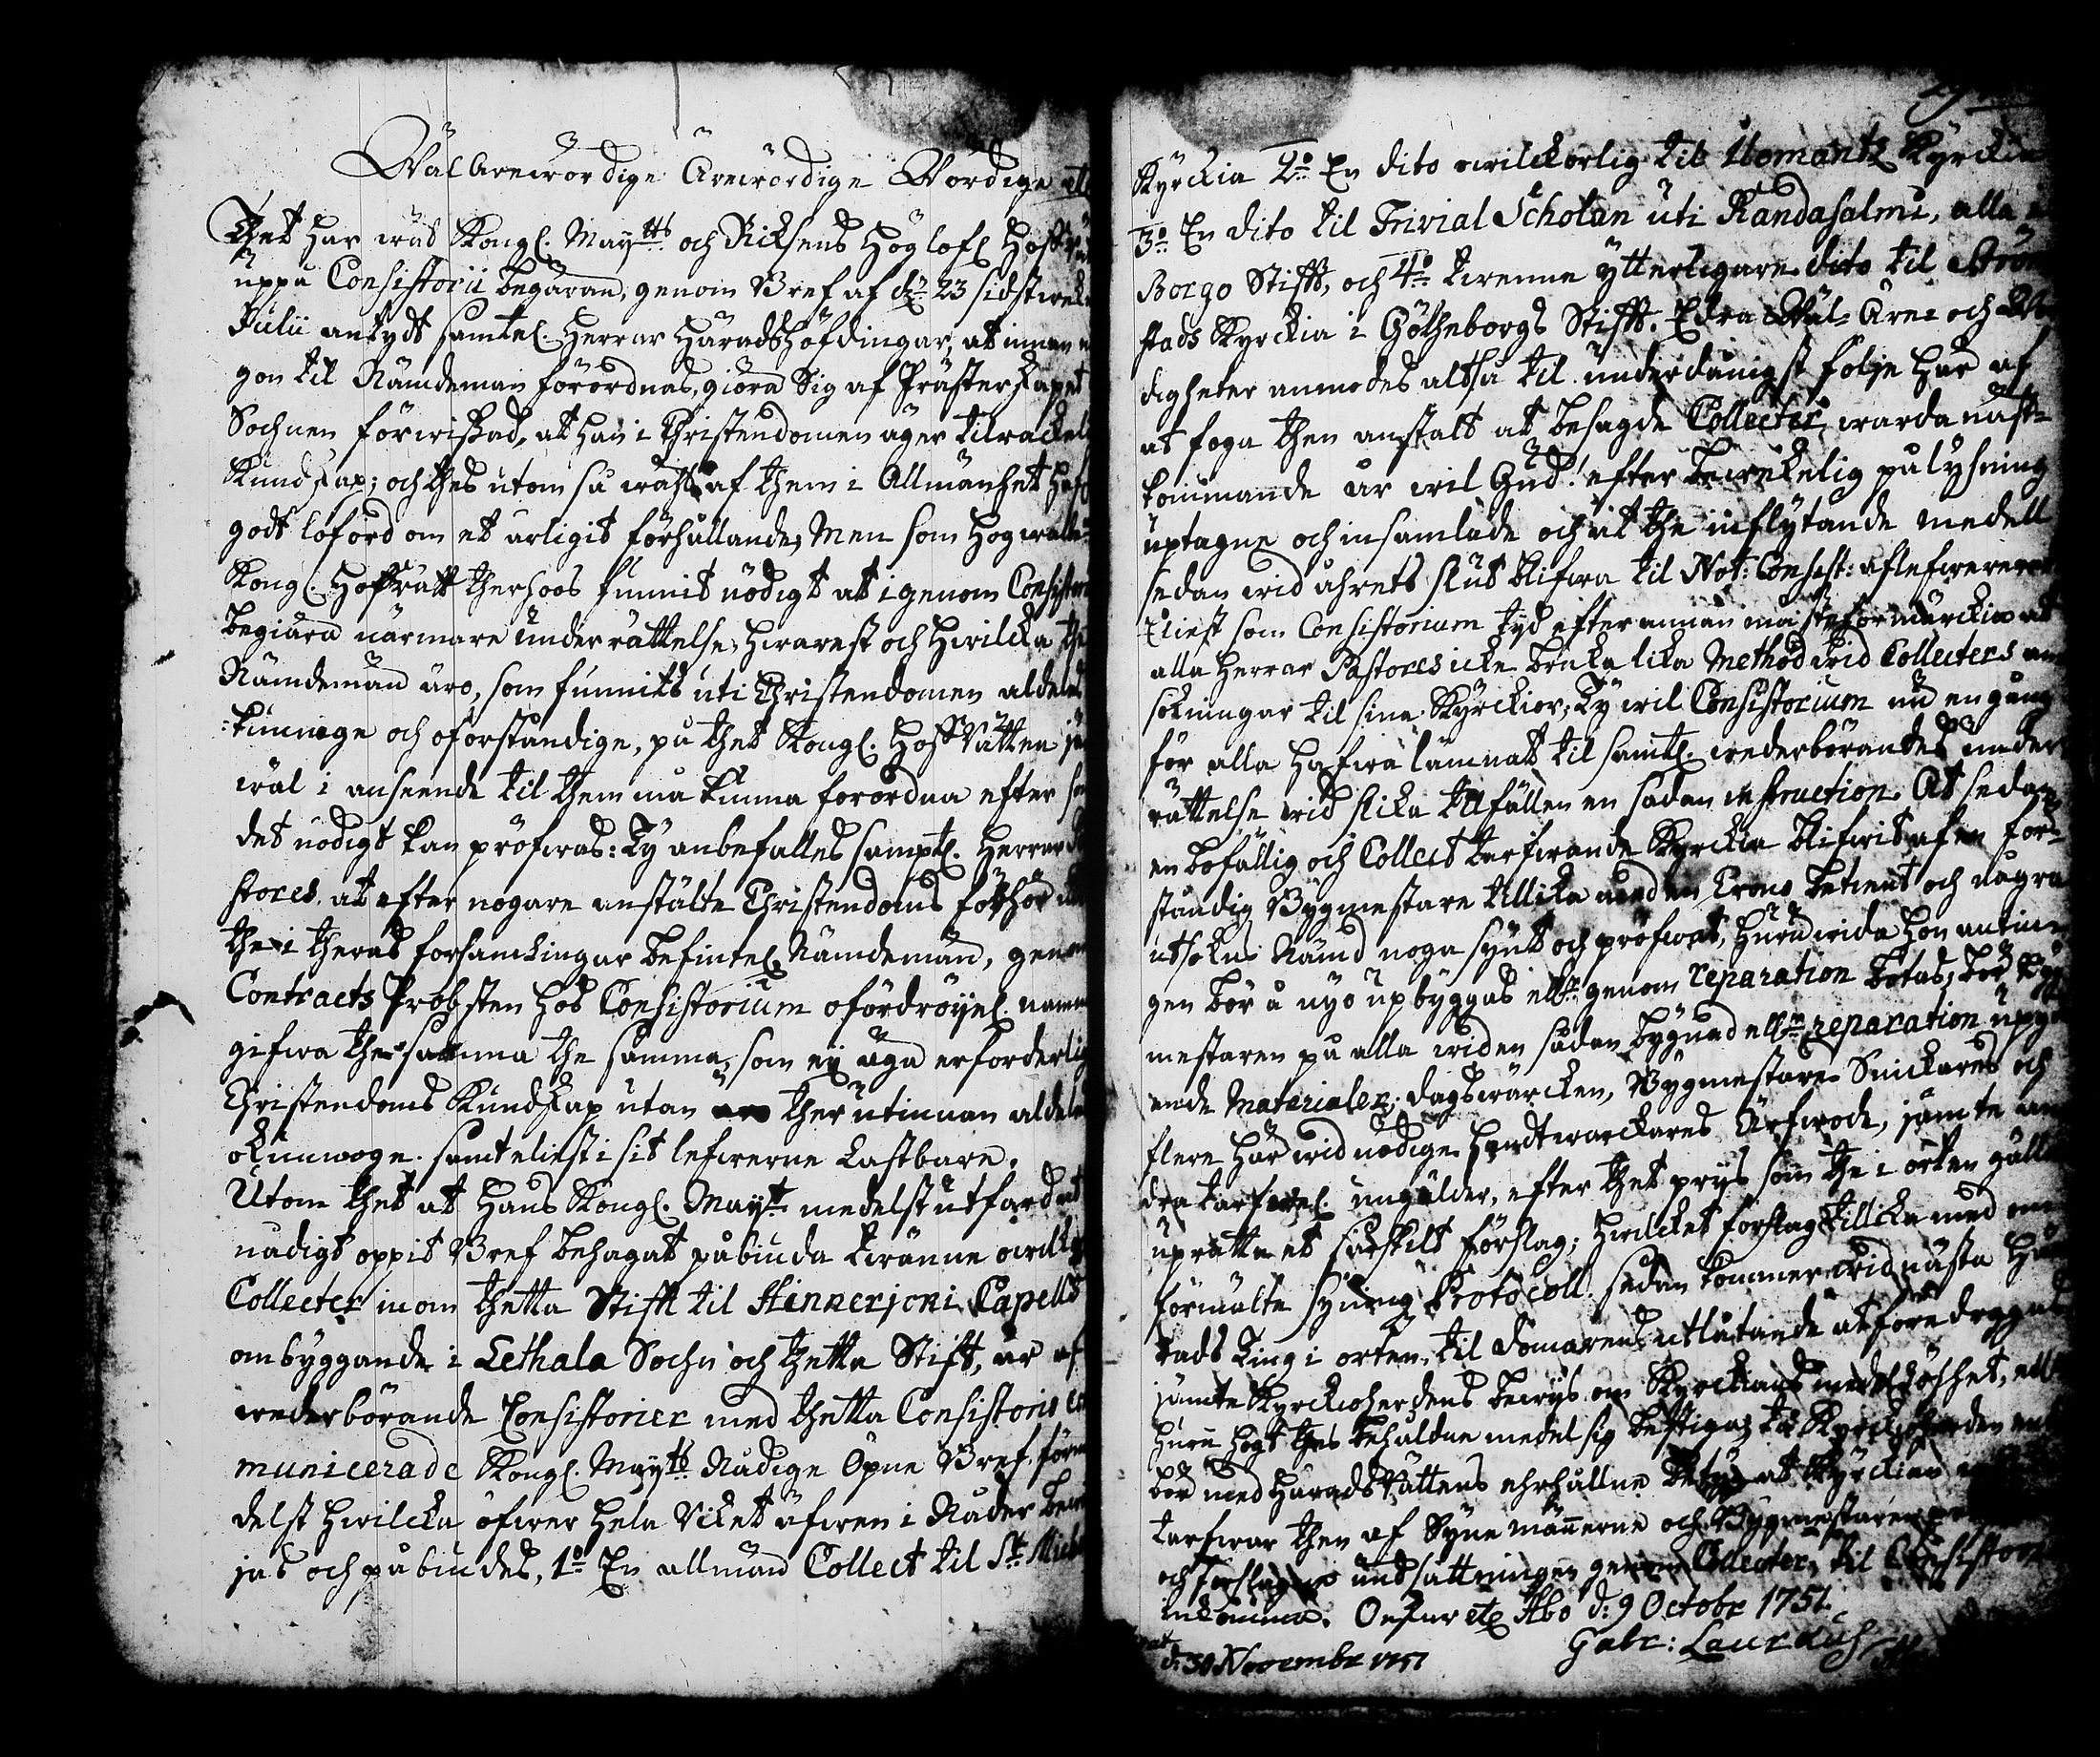 WälÄrewördige Ärewördige Wördige etc
Thet har wäl Kongl. Maytts och Riksens Höglofl. Hofrä
uppå Consistorii begäran, genom Bref af d. 23 sidstwekn
Julii antydt samtel. Herrar Häradshöfdingar, at innan nå
gon til Nämdeman förordnas, giöra sig af Prästerskapet
Sochnen förwissad, at han i Christendomen äger tilräckel
Kundskap; och thes utom så wäl af them i Allmänhet haf
godt loford om et ärligit förhållande; Men som högwälb
Kongl. Hofrätt therhoos funnit nödigt at igenom Consistor
begiära närmare underrättelse, hwarest och hwilcka the
Nämdemän äro, som funnits uti Christendomen aldeles
kunnoge och oförståndige, på thet Kongl. Hofrätten jä
wäl i anseende til them må kunna förordna efter som
det nödigt kan pröfwas: Ty anbefalles samptl. Herrar Pa
stores, at efter nogare anstälte Christendoms förhör med
the i theras församlingar befintel. Nämdemän, genom
Contracts Probsten hos Consistorium ofördröyel. namn
gifwa the samma, som ey äga erforderlig
Christendoms Kundskap utan ther utinnan aldeles
okunnoge samt eliest i sit lefwerne Lastbare.
Utom thet at Hans Kongl. Maytt medelst utfärdat
nådigt oppit Bref behagat påbiuda twänne owilk
Collecter inom thetta Stift til Hinnerjoni Capells
ombyggande i Lethala Sochn och thetta Stift, är af
wederbörande Consistorier med thetta Consistorio com
municerade Kongl. Maytts Nådige Öpne Bref, förme
delst hwilcka öfwer hela Riket äfwen i Nåder bewil
jas och påbiudes, 1o En allmän Collect til St. Miche
Kyrckia 2o En dito owilckorlig til Ilomantz Kyrckia
3o En dito til Trivial Scholan uti Randasalmi, alla i
Borgo Stift, och 4o twenne ytterligare dito til Ström
stads Kyrckia i Götheborgs Stift. Edra Wäl- Äre- och Wör
digheter anmodes altså til underdånigst följe här af
at foga then anstalt at besagde Collecter warda näst-
kommande år wil Gud! efter bewekelig pålysning
uptagne och insamlade och at the inflytande medell
sedan wid åhrets slut blifwa til Not: Consist: aflefwererade
Eliest som Consistorium tyd efter annan måst förmärckia at
alla Herrar Pastores icke bruka lika Method wid Collecters an
sökningar til sine Kyrckior; Ty wil Consistorium nu en gång
för alla hafwa lämnat til samtl. wederbörandes under
rättelse wid slika tilfällen en sådan instruction. At sedan
en bofällig och Collect tarfwande Kyrckia blifwit af en för-
ståndig Byggmestare tillika med en Crono betient och några
utsokne Nämd noga synt och pröfwat, huru wida hon antin-
gen bör å nyo upbyggas eller genom reparation botas; bör Bygg
mestaren på alla wid en sådan bygnad eller reparation upgå
ende Materialer, dagswärcken, Byggmestare Snickares och
flere här wid nödige handtwärckares Arfwode, jämte an
dra tarfwel. ungälder, efter thet prys som the i orten gälla
uprätta et särskilt förslag; hwilcket förslag tillika med om
förmälte synings Protocoll sedan kommer wid nästa Hä
rads Ting i orten, til Domarens utlåtande at föredragas
jämte Kyrckioherdens bewys om Kyrckians medellöshet, eller
huru högt thes behåldne medel sig bestiga; tå Kyrckioherden
bör med Härads Rättens ehrhållne betyg at Kyrckian
tarfwar then af Synemännerne och Byggmestaren
och förslagne undsättningen genom Collecter, til Consistorium
inkomma. Önskar etc Åbo d: 9 Octobr 1751.
Gabr: Lauræus
d: 30 Novembr 1751